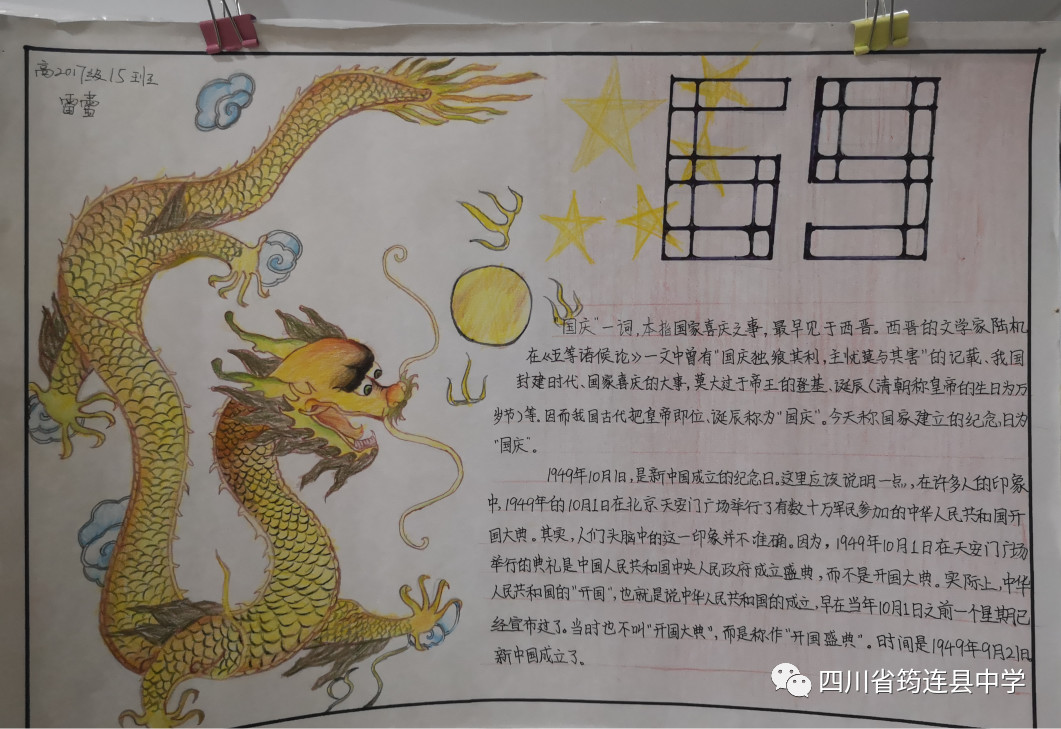 高2017级15班
雷蕾
69
"国庆"一词,本指国家喜庆之事,最早见于西晋。西晋的文学家陆机
在《五等诸侯论》一文中曾有"国庆独飨其利,主忧莫与其害"的记载、我国
封建时代、国家喜庆的大事,莫大过于帝王的登基、诞辰(清朝称皇帝的生日为万
岁节)等。因而我国古代把皇帝即位、诞辰称为"国庆"。今天称国家建立的纪念日为
"国庆"。
1949年10月1日,是新中国成立的纪念日。这里应该说明一点,在许多人的印象
中,1949年的10月1日在北京天安门广场举行了有数十万军民参加的中华人民共和国开
国大典。其实,人们头脑中的这一印象并不准确。因为,1949年10月1日在天安门广场
举行的典礼是中国人民共和国中央人民政府成立盛典,而不是开国大典。实际上,中华
人民共和国的"开国",也就是说中华人民共和国的成立,早在当年10月1日之前一个星期已
经宣布过了。当时也不叫"开国大典",而是称作"开国盛典"。时间是1949年9月21日
新中国成立了。
四川省筠连县中学